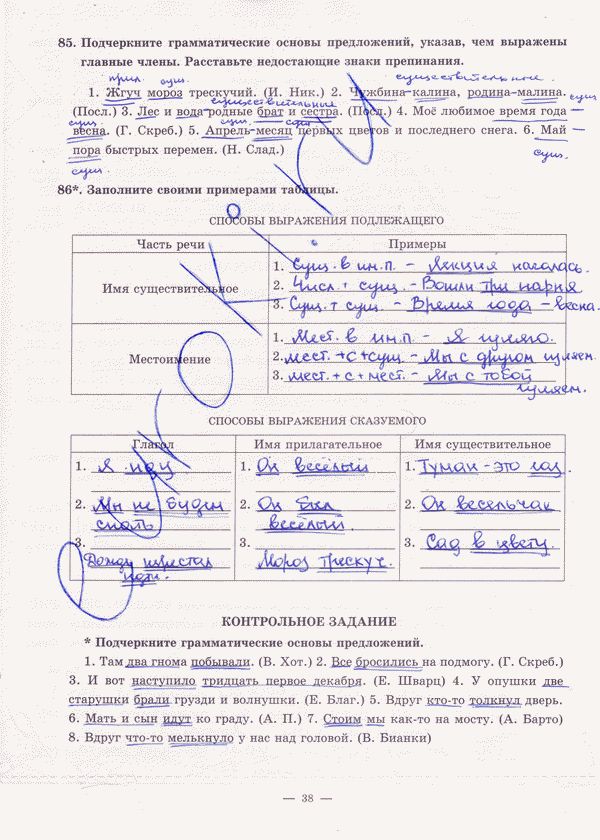 85. Подчеркните грамматические основы предложений, указав, чем выражены
главные члены. Расставьте недостающие знаки препинания.
прил. сущ. существительное.
1. Жгуч мороз трескучий. (И. Ник.) 2. Чужбина-калина, родина-малина.
существительные сущ
(Посл.) 3. Лес и вода-родные брат и сестра. (Посл.) 4. Моё любимое время года —
сущ. сущ. сущ
весна. (Г. Скреб.) 5. Апрель-месяц первых цветов и последнего снега. 6. Май —
пора быстрых перемен. (Н. Слад.)
сущ. сущ.
86*. Заполните своими примерами таблицы.
СПОСОБЫ ВЫРАЖЕНИЯ ПОДЛЕЖАЩЕГО
Часть речи Примеры
Имя существительное
1. Сущ. в им.п. – Лекция началась.
2. Числ. + сущ. – Вошли три парня
3. Сущ. + сущ. – Время года – весна.
Местоимение
1. Мест. в им.п – Я гуляю.
2. мест. +с+сущ. – Мы с другом гуляем.
3. мест. + с + мест. – Мы с тобой
гуляем.
СПОСОБЫ ВЫРАЖЕНИЯ СКАЗУЕМОГО
Глагол Имя прилагательное Имя существительное
1. Я иду 1. Он весёлый 1. Туман – это газ.
2. Мы не будем 2. Он был 2. Он весельчак
спать весёлый.
3. 3. 3. Сад в цвету.
Дождь перестал Мороз трескуч.
идти.
КОНТРОЛЬНОЕ ЗАДАНИЕ
* Подчеркните грамматические основы предложений.
1. Там два гнома побывали. (В. Хот.) 2. Все бросились на подмогу. (Г. Скреб.)
3. И вот наступило тридцать первое декабря. (Е. Шварц) 4. У опушки две
старушки брали грузди и волнушки. (Е. Благ.) 5. Вдруг кто-то толкнул дверь.
6. Мать и сын идут ко граду. (А. П.) 7. Стоим мы как-то на мосту. (А. Барто)
8. Вдруг что-то мелькнуло у нас над головой. (В. Бианки)
— 38 —